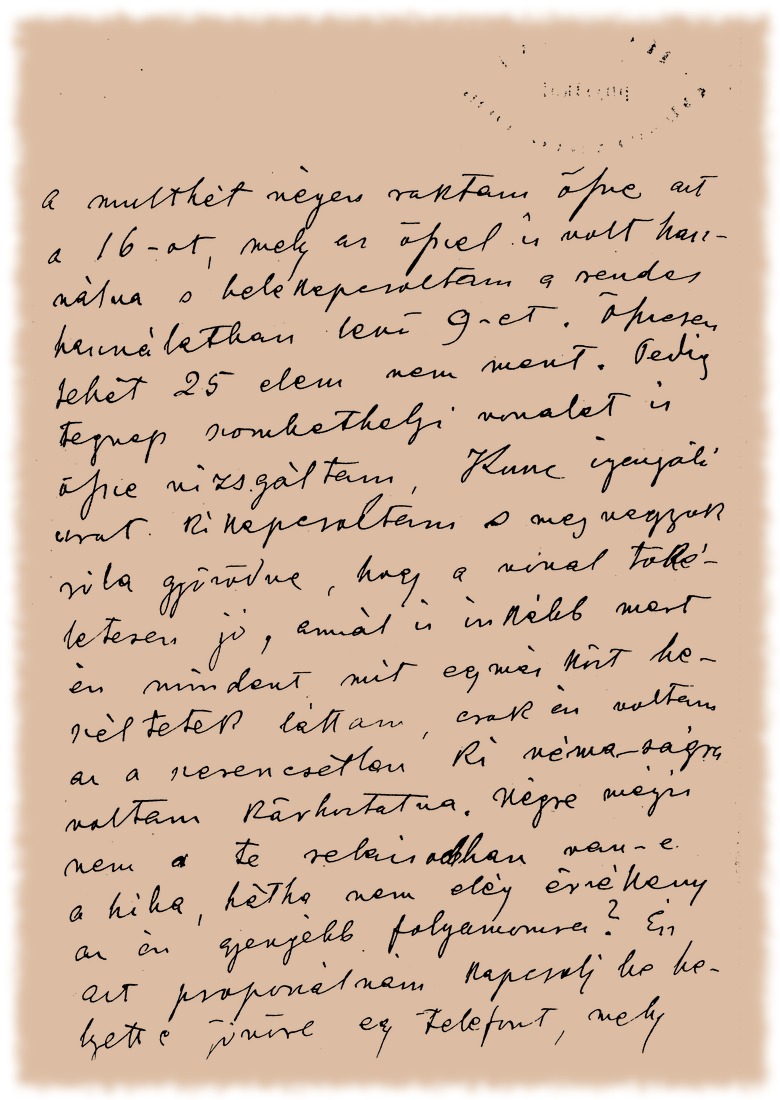 a multhét végén raktam össze azt
a 16-ot, mely az őssel is volt hasz-
nálva s belekapcsoltam a rendes
használatban levő 9-et. Összesen
tehát 25 elem nem ment. Pedig
tegnap szombathelyi vonalat is
össze vizsgáltam, Kunc igazgató
urat kikapcsoltam s meg vagyok
róla győződve, hogy a vonal töké-
letesen jó, annál is inkább mert
én mindent mit egymás közt be-
széltetek láttam, csak én voltam
az a szerencsétlen ki néma-ságra
voltam kárhoztatva. Végre mégis
nem a te relaisodban van-e
a hiba, hátha nem elég érzékeny
az én gyengébb folyamomra? Én
azt proponálnám kapcsolj be he-
lyette jövőre egy telefont, mely